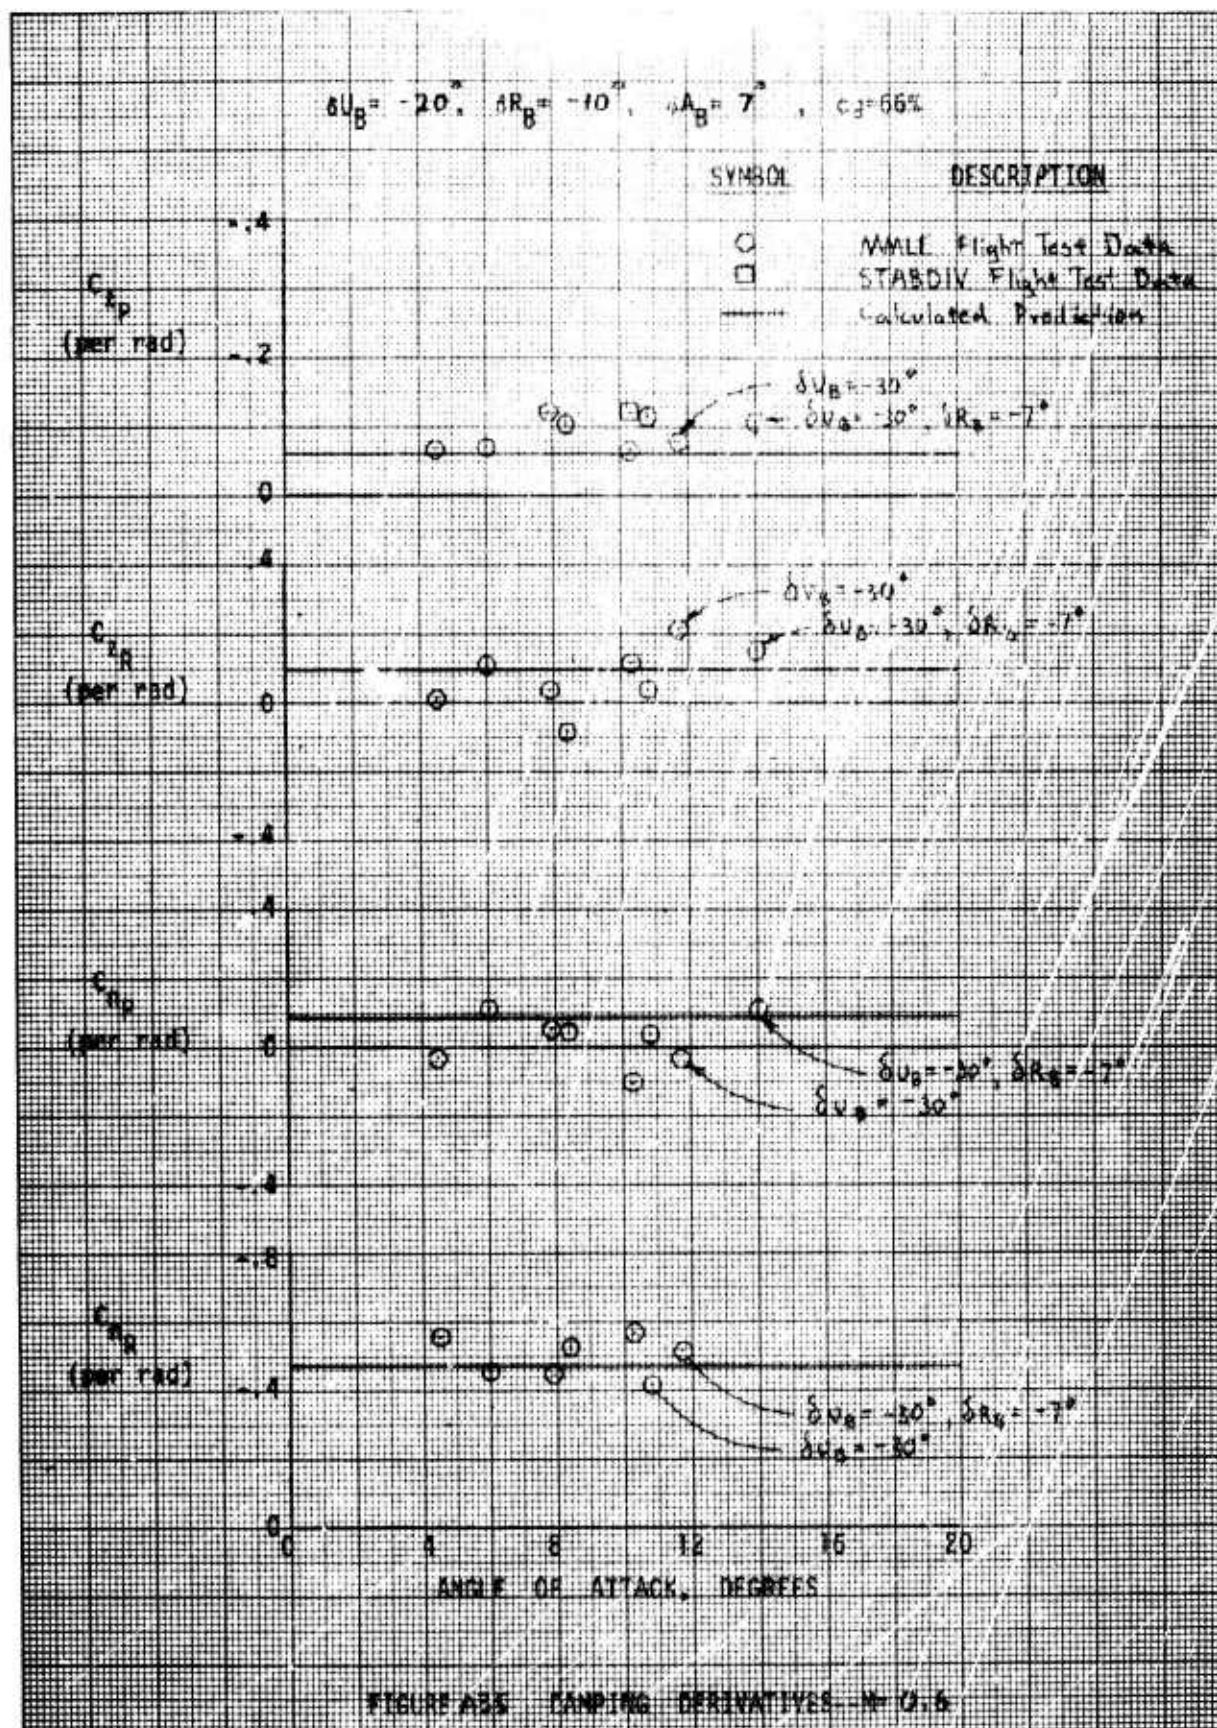 δU_B = -20°, δR_B = -10°, δA_B = 7°, cg=66%
SYMBOL DESCRIPTION
○ MMLE Flight Test Data
□ STABDIV Flight Test Data
Calculated Prediction
-.4
C_ℓ_P
(per rad)
-.2
δU_B = -30°
δU_B = -30°, δR_B = -7°
0
.4
δU_B = -30°
δU_B = -30°, δR_B = -7°
C_ℓ_R
(per rad)
0
-.4
.4
C_n_P
(per rad)
0
δU_B = -30°, δR_B = -7°
δU_B = -30°
-.4
-.8
C_n_R
(per rad)
-.4
δU_B = -30°, δR_B = -7°
δU_B = -30°
0
0 4 8 12 16 20
ANGLE OF ATTACK, DEGREES
FIGURE A35 DAMPING DERIVATIVES--M=